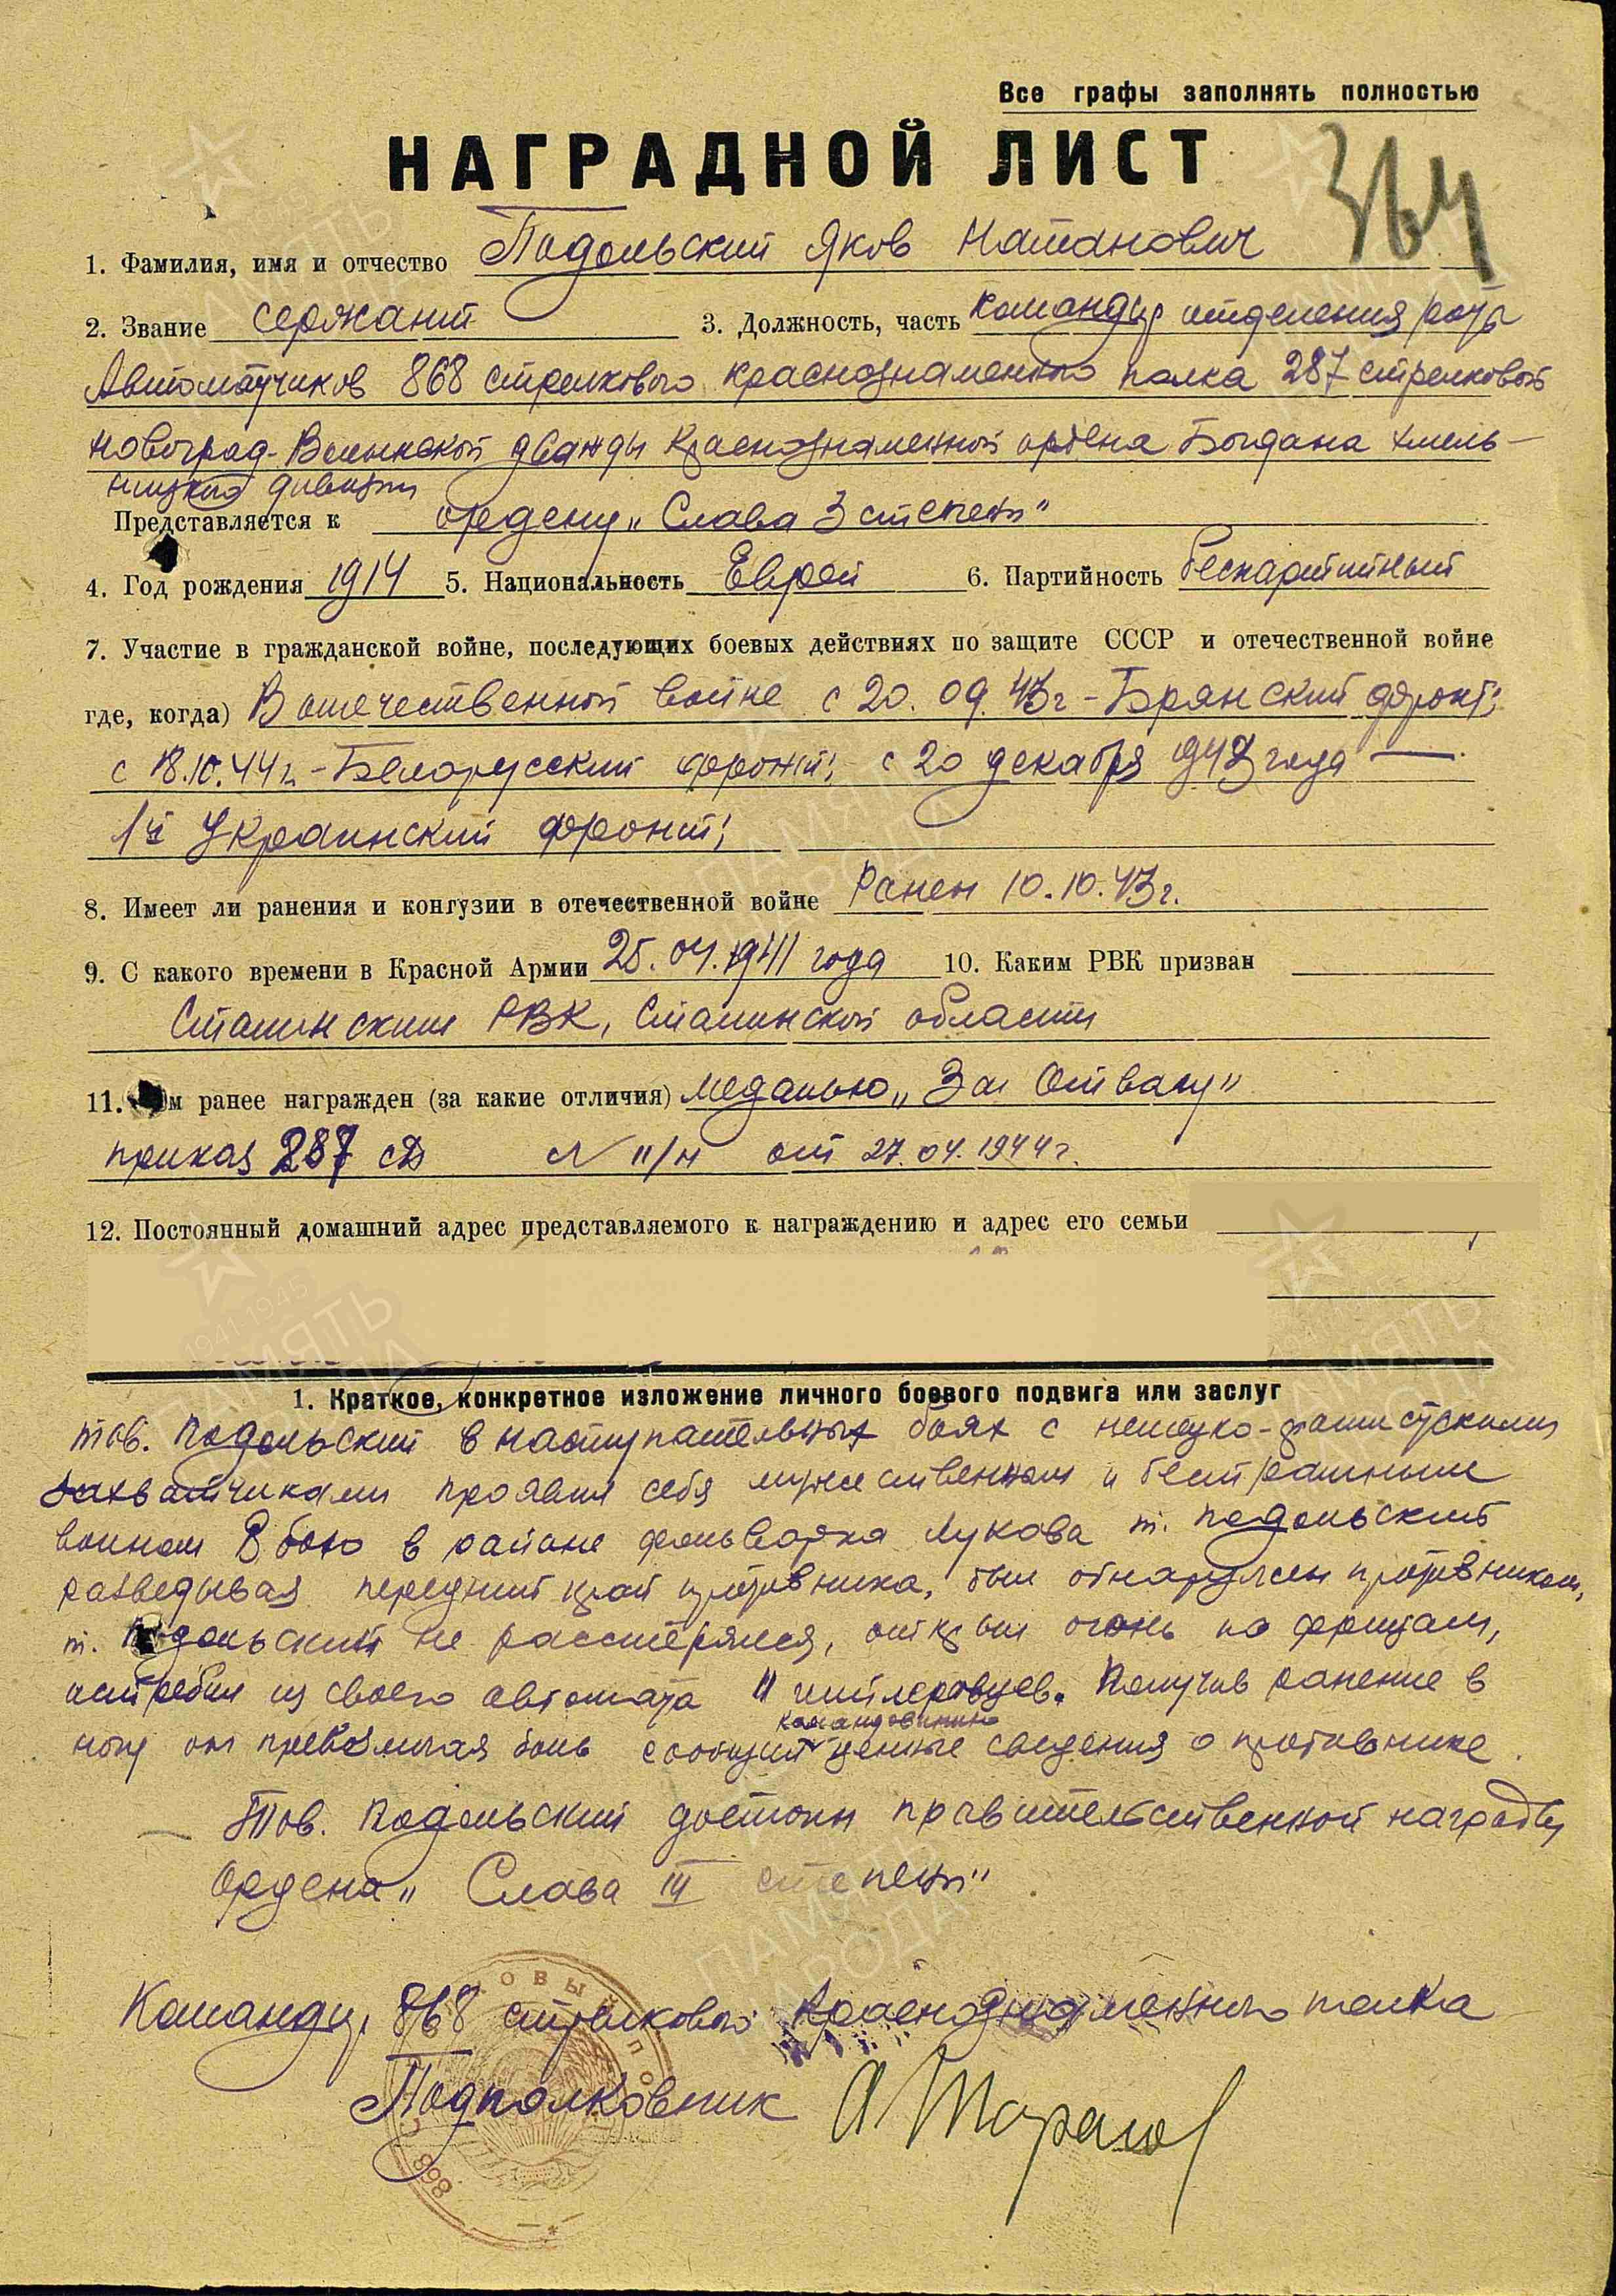 Все графы заполнять полностью
НАГРАДНОЙ ЛИСТ
364
1. Фамилия, имя и отчество Подольский Яков Натанович
2. Звание сержант 3. Должность, часть командир отделения роты
Автоматчиков 868 стрелкового краснознаменного полка 287 стрелковой
Новоград-Волынской дважды Краснознаменной ордена Богдана Хмель-
ницкого дивизии
Представляется к ордену „Слава 3 степени"
4. Год рождения 1914 5. Национальность Еврей 6. Партийность беспартийный
7. Участие в гражданской войне, последующих боевых действиях по защите СССР и отечественной войне
где, когда) В отечественной войне с 20.09.43г - Брянский фронт;
с 18.10.44г. - Белорусский фронт; с 20 декабря 1943 года —
1й Украинский фронт;
8. Имеет ли ранения и контузии в отечественной войне Ранен 10.10.43г.
9. С какого времени в Красной Армии 25.04.1941 года 10. Каким РВК призван
Сталинским РВК, Сталинской области
11. м ранее награжден (за какие отличия) медалью „За Отвагу"
приказ 287 сд N "/н от 27.04.1944г.
12. Постоянный домашний адрес представляемого к награждению и адрес его семьи
1. Краткое, конкретное изложение личного боевого подвига или заслуг
тов. Подольский в наступательных боях с немецко-фашистскими
захватчиками проявил себя мужественным и бесстрашным
воином В бою в районе фольварка Лукава т. Подольский
разведывая передний край противника, был обнаружен противником,
т. Подольский не растерялся, открыл огонь по фрицам,
истребил из своего автомата 11 гитлеровцев. Получив ранение в
командованию
ногу он превозмогая боль сообщил ценные сведения о противнике.
Тов. Подольский достоин правительственной награды
Ордена „Слава III степени"
Командир 868 стрелкового Краснознаменного полка
Подполковник А Тарасов
868